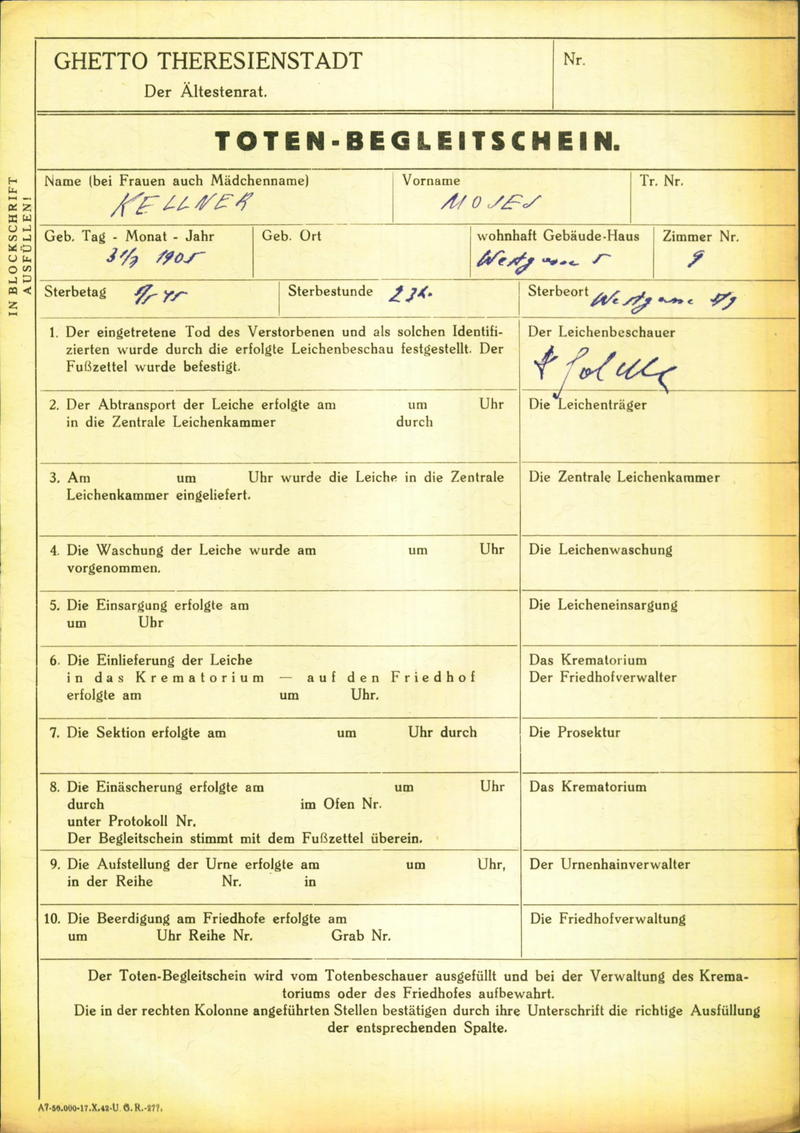 GHETTO THERESIENSTADT
Der Ältestenrat.
Nr.
TOTEN-BEGLEITSCHEIN.
IN BLOCKSCHRIFT
AUSFÜLLEN!
Name (bei Frauen auch Mädchenname) Vorname Tr. Nr.
KELLNER MOSES
Geb. Tag - Monat - Jahr Geb. Ort wohnhaft Gebäude-Haus Zimmer Nr.
1905 5 9
Sterbetag Sterbestunde Sterbeort
1. Der eingetretene Tod des Verstorbenen und als solchen Identifi-
zierten wurde durch die erfolgte Leichenbeschau festgestellt. Der
Fußzettel wurde befestigt.
Der Leichenbeschauer
2. Der Abtransport der Leiche erfolgte am um Uhr
in die Zentrale Leichenkammer durch
Die Leichenträger
3. Am um Uhr wurde die Leiche in die Zentrale
Leichenkammer eingeliefert.
Die Zentrale Leichenkammer
4. Die Waschung der Leiche wurde am um Uhr
vorgenommen.
Die Leichenwaschung
5. Die Einsargung erfolgte am
um Uhr
Die Leicheneinsargung
6. Die Einlieferung der Leiche
in das Krematorium — auf den Friedhof
erfolgte am um Uhr.
Das Krematorium
Der Friedhofverwalter
7. Die Sektion erfolgte am um Uhr durch
Die Prosektur
8. Die Einäscherung erfolgte am um Uhr
durch im Ofen Nr.
unter Protokoll Nr.
Der Begleitschein stimmt mit dem Fußzettel überein.
Das Krematorium
9. Die Aufstellung der Urne erfolgte am um Uhr,
in der Reihe Nr. in
Der Urnenhainverwalter
10. Die Beerdigung am Friedhofe erfolgte am
um Uhr Reihe Nr. Grab Nr.
Die Friedhofverwaltung
Der Toten-Begleitschein wird vom Totenbeschauer ausgefüllt und bei der Verwaltung des Krema-
toriums oder des Friedhofes aufbewahrt.
Die in der rechten Kolonne angeführten Stellen bestätigen durch ihre Unterschrift die richtige Ausfüllung
der entsprechenden Spalte.
A7-50.000-17.X.42-U. G. R.-277.